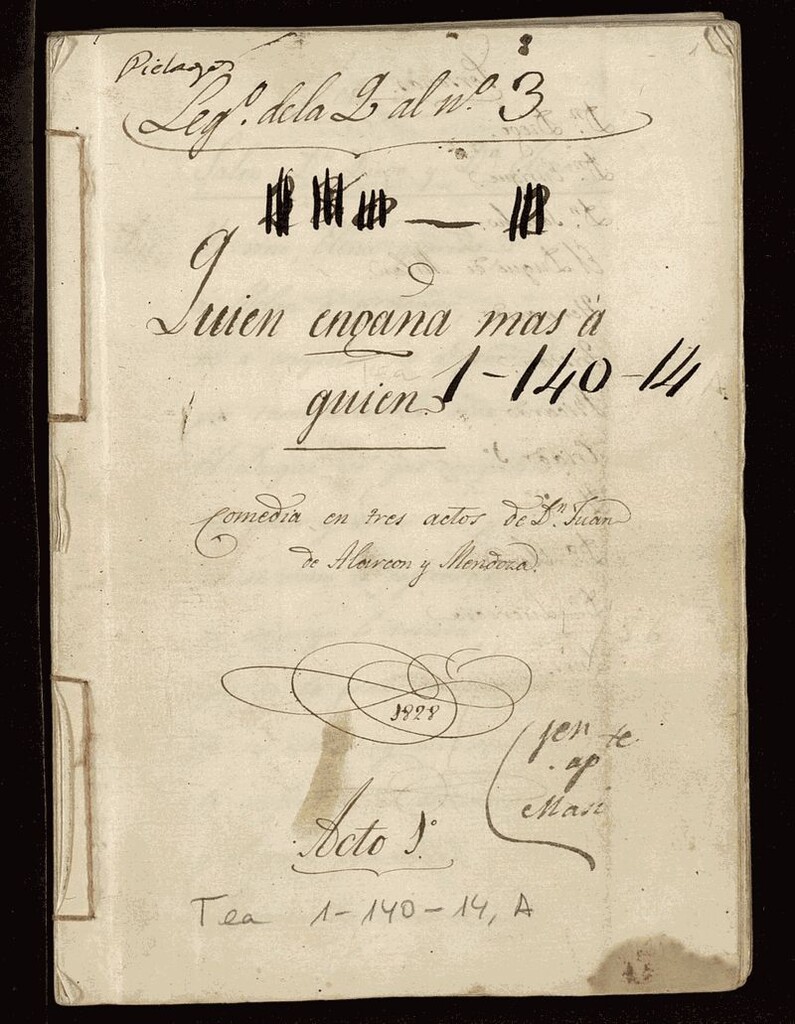 Legº. de la Q al nº. 3
Quien engaña mas á
quien. 1-140-14
Comedia en tres actos de Dn. Juan
de Alarcon y Mendoza.
1828
Acto 1º.
Tea 1-140-14, A